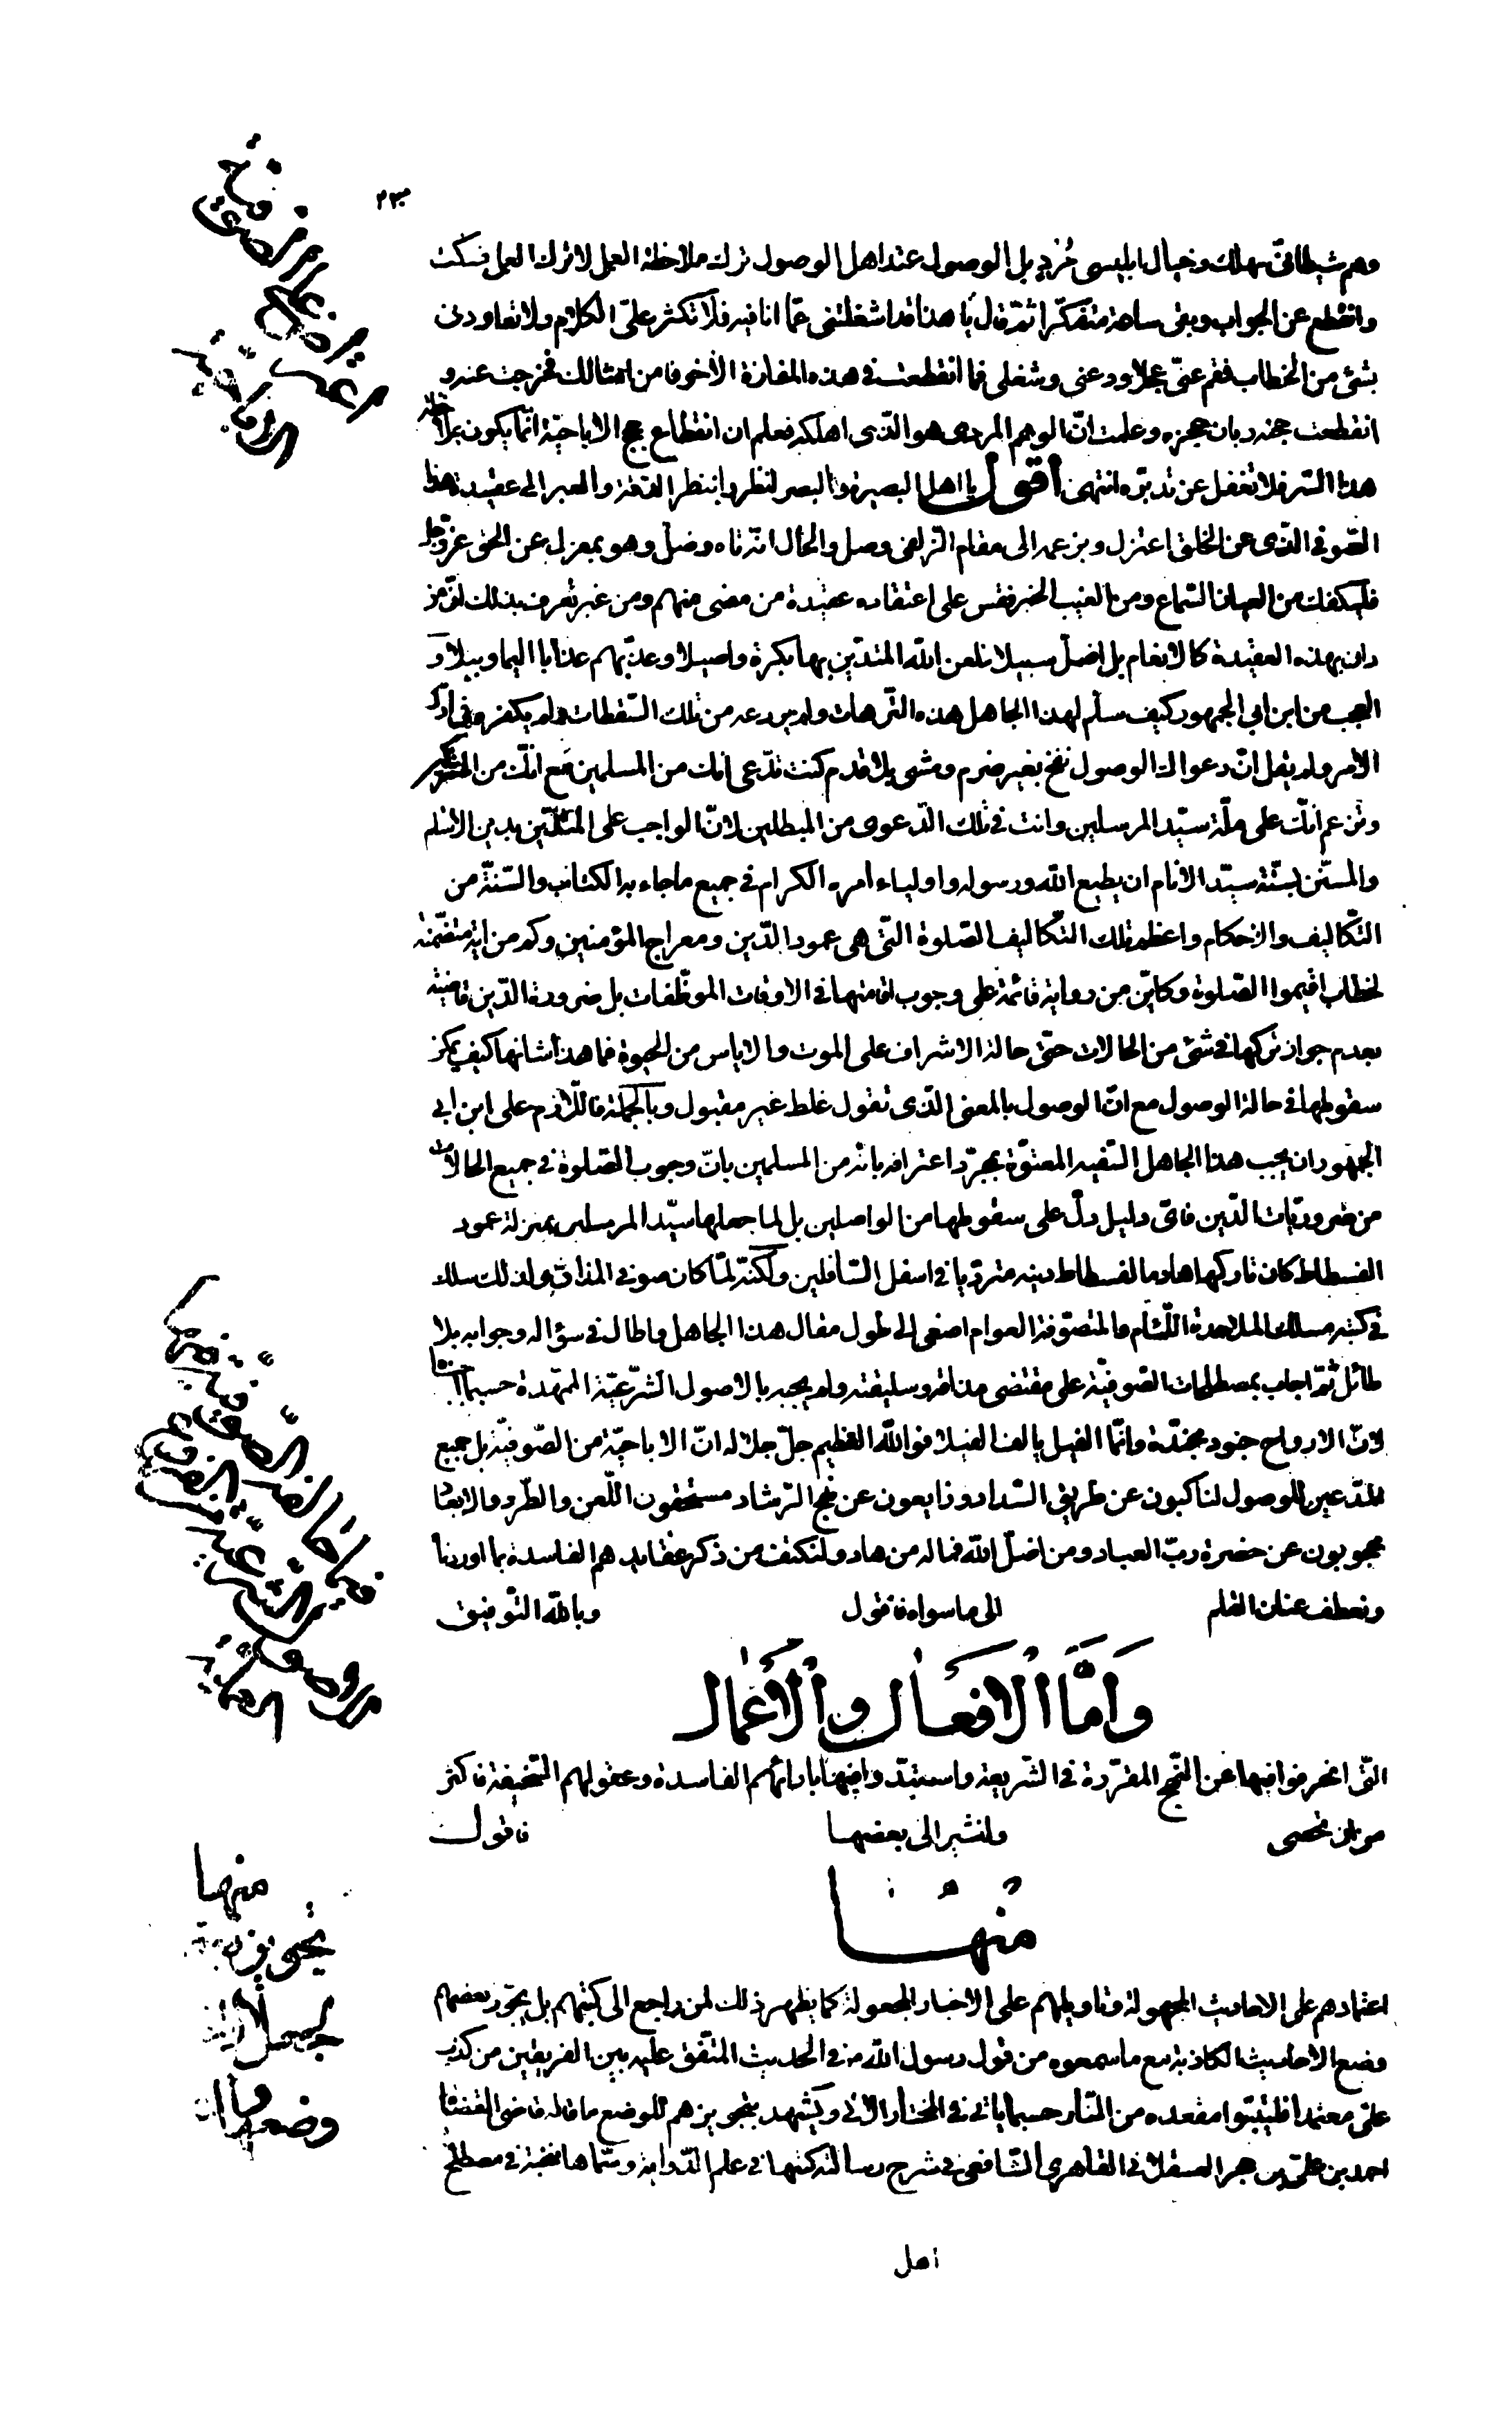 وهم شيطانيّ مهلك وخيال ابليسى مُردٍ بل الوصول عند اهل الوصول ترك ملاحظة العمل لا ترك العمل فسكت
وانقطع عن الجواب وبقى ساعة متفكّرا ثمّ قال يا هذا قد اشغلتنى عمّا انا فيه فلا تكثر علىّ الكلام ولا تعاودنى
بشئ من الخطاب فقم عنّى عجلا ودعنى وشغلى فما انقطعت فى هذه المفازة الّا خوفا من امثالك فخرجت عنه و
انقطعت حجّته وبان عجزه وعلمت انّ الوهم المردى هو الّذى اهلكه فعلم ان انقطاع حجج الاباحيّة انّما يكون بملاحظة
هذا السّر فلا تغفل عن تدبّره انتهى اقول يا اهل البصيرة والبصر لنظروا بنظر الدقة والعبر الى عقيدة هذا
الصّوفى الّذى عن الخلق اعتزل وبزعمه الى مقام الزلفى وصل والحال انّه تاه وضلّ وهو بمعزل عن الحق عزّ وجلّ
فليكفك من العيان السّماع ومن الغيب الخبر فقس على اعتقاده عقيدة من مضى منهم ومن غبر تعرف بذلك انّ من
دان بهذه العقيدة كالانعام بل اضلّ سبيلا فلعن الله المتديّن بها بكرة واصيلا وعذّبهم عذابا اليما وبيلا و
العجب من ابن ابي الجمهور كيف سلّم لهذا الجاهل هذه التّرهات ولم يردعه من تلك السّقطات ولم يكفره فى اوّل
الامر ولم يقل انّ دعواك الوصول نفخ بغير ضرم ومشى بلا قدم كنت تدّعى انك من المسلمين مع انّك من المنكرين
وتزعم انّك على ملّة سيّد المرسلين وانت فى تلك الدّعوى من المبطلين لانّ الواجب على المتديّن بدين الاسلام
والمستّن بسنّة سيّد الانام ان يطيع الله ورسوله واولياء امره الكرام فى جميع ما جاء به الكتاب والسّنّة من
التّكاليف والاحكام واعظم تلك التّكاليف الصّلوة الّتى هى عمود الدّين ومعراج المؤمنين وكم من اية متضمّنة
لخطاب اقيموا الصّلوة وكايّن من رواية قائمة على وجوب اقامتها فى الاوقات الموظّفات بل ضرورة الدّين قاضية
بعدم جواز تركها فى شئ من الحالات حتّى حالة الاشراف على الموت والاياس من الحيوة فما هذا شانها كيف يمكن
سقوطها فى حالة الوصول مع انّ الوصول بالمعنى الّذى تقول غلط غير مقبول وبالجملة فاللّازم على ابن ابى
الجمهور ان يجيب هذا الجاهل السّفيه المعتوّة بمجرّد اعترافه بانّه من المسلمين بانّ وجوب الصّلوة فى جميع الحالات
من ضروريّات الدّين فاىّ دليل دلّ على سقوطها من الواصلين بل لما جعلها سيّد المرسلين بمنزلة عمود
الفسطاط كان تاركها هادما لفسطاط دينه متردّيا فى اسفل السّافلين ولكنّه لمّا كان صوفى المذاق ولذلك سلك
فى كتبه مسلك الملاحدة اللّئام والمتصوّفة العوام اصغى الى طول مقال هذا الجاهل واطال فى سؤاله وجوابه بلا
طائل ثمّ اجاب بمصطلحات الصّوفيّة على مقتضى مذاقه وسليقته ولم يجبه بالاصول الشّرعيّة الممهّدة حسبما
لانّ الارواح جنود مجنّدة وانّما الفيل يالف الفيلا فو الله العظيم جلّ جلاله انّ الاباحيّة من الصّوفيّة بل جميع
المدّعين للوصول لناكبون عن طريق السّداد وزايعون عن نهج الرّشاد مستحقون اللّعن والطّرد والابعاد
محجوبون عن حضرة ربّ العباد ومن اضلّ الله فما له من هاد ولنكتف من ذكر عقايدهم الفاسدة بما اوردنا
ونعطف عنان القلم الى ما سواه فاقول وبالله التّوفيق
وَاَمَّا الاَفعَال وَالاَعمَال
الّتى انحرفوا فيها عن النّهج المقرّرة فى الشّريعة واستبدّوا فيها بارائهم الفاسدة وعقولهم السّخيفة فاكثر
من ان تحصى ولنشر الى بعضها فاقول
مُنهَا
اعتمادهم على الاحاديث المجهولة وتاويلهم على الاخبار المجعولة كما يظهر ذلك لمن راجع الى كتبهم بل يجوّز بعضهم
وضع الاحاديث الكاذبة مع ما سمعوه من قول رسول الله ص فى الحديث المتّفق عليه بين الفريقين من كذب
علىّ متعمدا فليتبوّا مقعده من النّار حسبما ياتى فى المختار الآتى ويشهد بتجويزهم للوضع ما قاله قاضى القضاة
احمد بن علىّ بن حجر العسقلانى القاهرى الشّافعى فى شرح رسالته كتبها فى علم الدّراية وسمّاها نخبة فى مصطلح
اهل
منها
تجويزهم
لجعل
وضعها